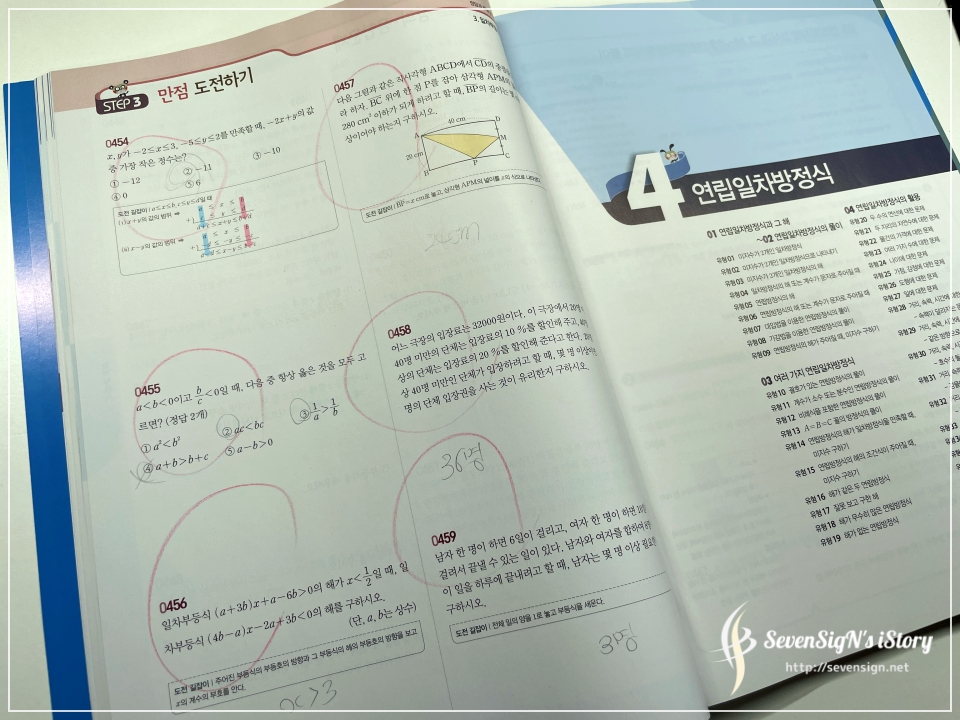 STEP 3 만점 도전하기
0454
x, y가 −2≤x≤3, −5≤y≤2를 만족할 때, −2x+y의 값
중 가장 작은 정수는?
① −12 ② −11 ③ −10
④ 0 ⑤ 6
도전 길잡이 | a≤x≤b, c≤y≤d일 때
(i) x+y의 값의 범위 ➡
(ii) x−y의 값의 범위 ➡
0455
a<b<0이고 b/c<0일 때, 다음 중 항상 옳은 것을 모두 고
르면? (정답 2개)
① a²<b² ② ac<bc ③ 1/a>1/b
④ a+b>b+c ⑤ a−b>0
0456
일차부등식 (a+3b)x+a−6b>0의 해가 x<1/2일 때, 일
차부등식 (4b−a)x−2a+3b<0의 해를 구하시오.
(단, a, b는 상수)
도전 길잡이 | 주어진 부등식의 부등호의 방향과 그 부등식의 해의 부등호의 방향을 보고
x의 계수의 부호를 안다.
x>3
0457
다음 그림과 같은 직사각형 ABCD에서 CD의
라 하자. BC 위에 한 점 P를 잡아 삼각형 APM의
280 cm² 이하가 되게 하려고 할 때, BP의 길이는 몇
상이어야 하는지 구하시오.
40 cm
20 cm
A
D
M
B
P
C
도전 길잡이 | BP=x cm로 놓고, 삼각형 APM의 넓이를 x의 식으로 나타낸다.
0458
어느 극장의 입장료는 32000원이다. 이 극장에서
40명 미만의 단체는 입장료의 10 %를 할인해 주고,
상의 단체는 입장료의 20 %를 할인해 준다고 한다.
상 40명 미만인 단체가 입장하려고 할 때, 몇 명 이상
명의 단체 입장권을 사는 것이 유리한지 구하시오.
36명
0459
남자 한 명이 하면 6일이 걸리고, 여자 한 명이 하면
걸려서 끝낼 수 있는 일이 있다. 남자와 여자를 합하여
이 일을 하루에 끝내려고 할 때, 남자는 몇 명 이상
구하시오.
도전 길잡이 | 전체 일의 양을 1로 놓고 부등식을 세운다.
3명
4 연립일차방정식
01 연립일차방정식과 그 해
~02 연립일차방정식의 풀이
유형 01 미지수가 2개인 일차방정식
유형 02 미지수가 2개인 일차방정식으로 나타내기
유형 03 미지수가 2개인 일차방정식의 해
유형 04 일차방정식의 해 또는 계수가 문자로 주어질 때
유형 05 연립방정식의 해
유형 06 연립방정식의 해 또는 계수가 문자로 주어질 때
유형 07 대입법을 이용한 연립방정식의 풀이
유형 08 가감법을 이용한 연립방정식의 풀이
유형 09 연립방정식의 해가 주어질 때, 미지수 구하기
03 여러 가지 연립일차방정식
유형 10 괄호가 있는 연립방정식의 풀이
유형 11 계수가 소수 또는 분수인 연립방정식의 풀이
유형 12 비례식을 포함한 연립방정식의 풀이
유형 13 A=B=C 꼴의 방정식의 풀이
유형 14 연립방정식의 해가 일차방정식을 만족할 때,
미지수 구하기
유형 15 연립방정식의 해의 조건식이 주어질 때,
미지수 구하기
유형 16 해가 같은 두 연립방정식
유형 17 잘못 보고 구한 해
유형 18 해가 무수히 많은 연립방정식
유형 19 해가 없는 연립방정식
04 연립일차방정식의 활용
유형 20 두 수의 연산에 대한 문제
유형 21 두 자리의 자연수에 대한 문제
유형 22 물건의 가격에 대한 문제
유형 23 여러 가지 수에 대한 문제
유형 24 나이에 대한 문제
유형 25 가점, 감점에 대한 문제
유형 26 도형에 대한 문제
유형 27 일에 대한 문제
유형 28 거리, 속력, 시간에
유형 29 거리, 속력,
유형 30 거리, 속
유형 31 거리,
유형 32
SevenSigN's iStory
http://sevensign.net